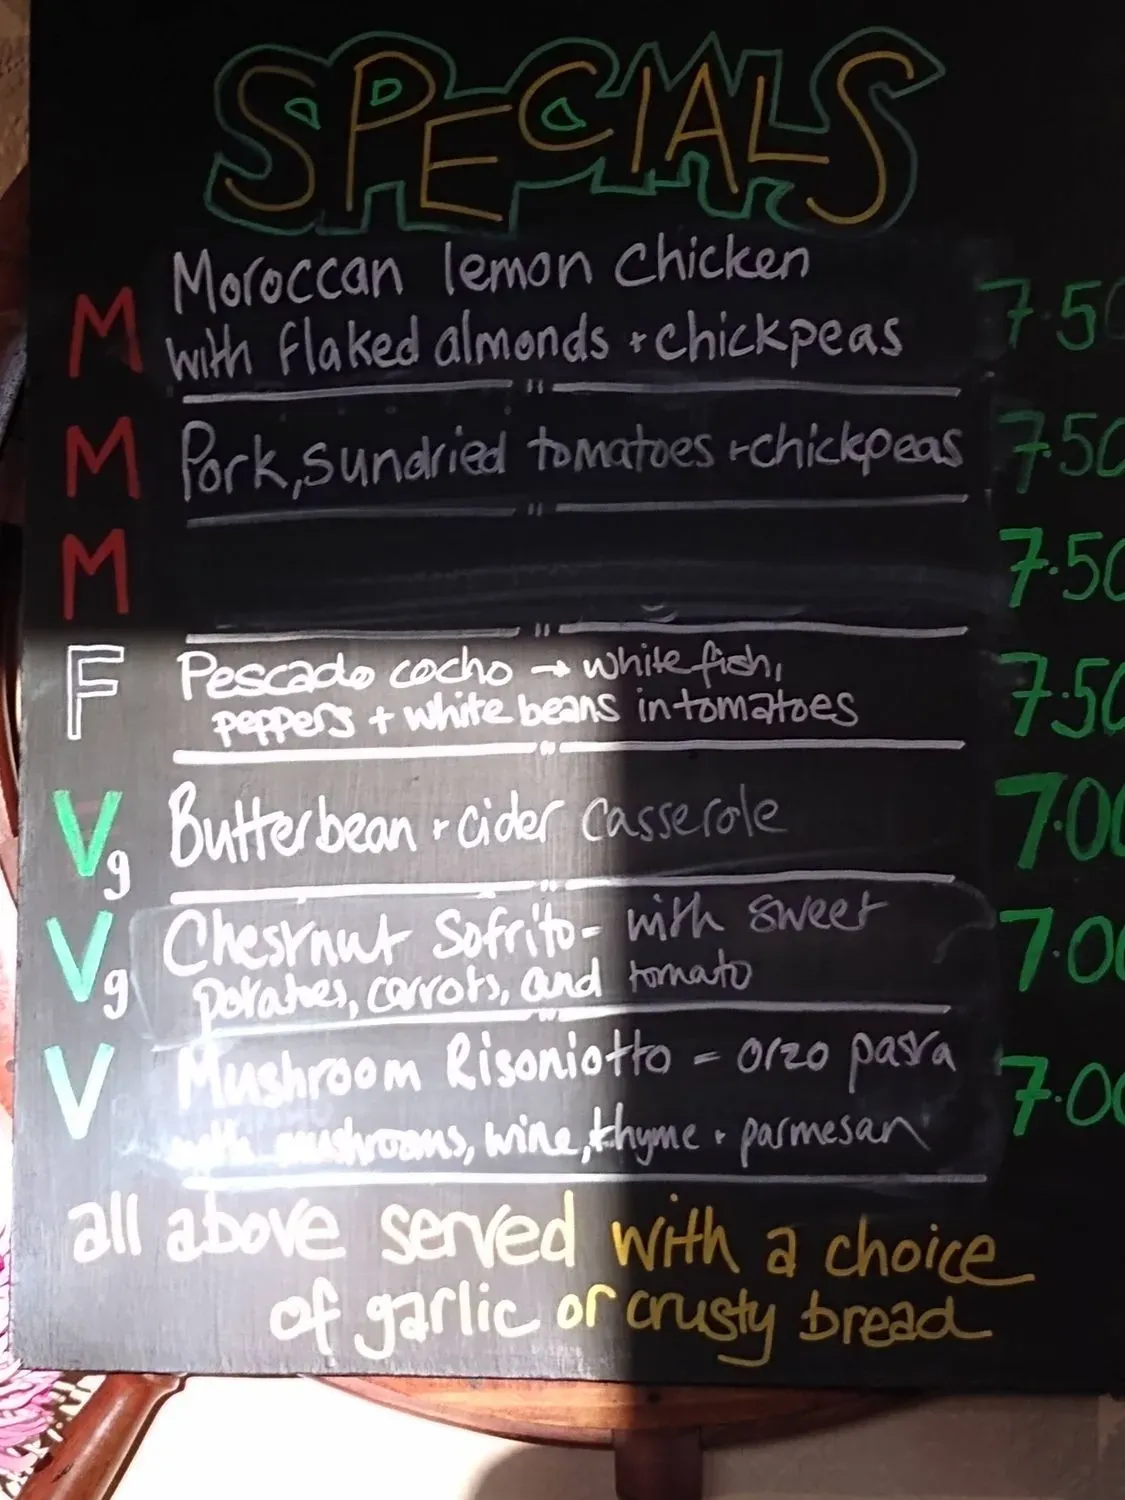 SPECIALS
M Moroccan lemon chicken
with flaked almonds + chickpeas 7.50
M Pork, sundried tomatoes + chickpeas 7.50
M 7.50
F Pescado cocho → white fish,
peppers + white beans in tomatoes 7.50
Vg Butterbean + cider casserole 7.00
Vg Chestnut Sofrito - with sweet
potatoes, carrots, and tomato 7.00
V Mushroom Risoniotto = orzo pasta
with mushrooms, wine, thyme + parmesan 7.00
all above served with a choice
of garlic or crusty bread